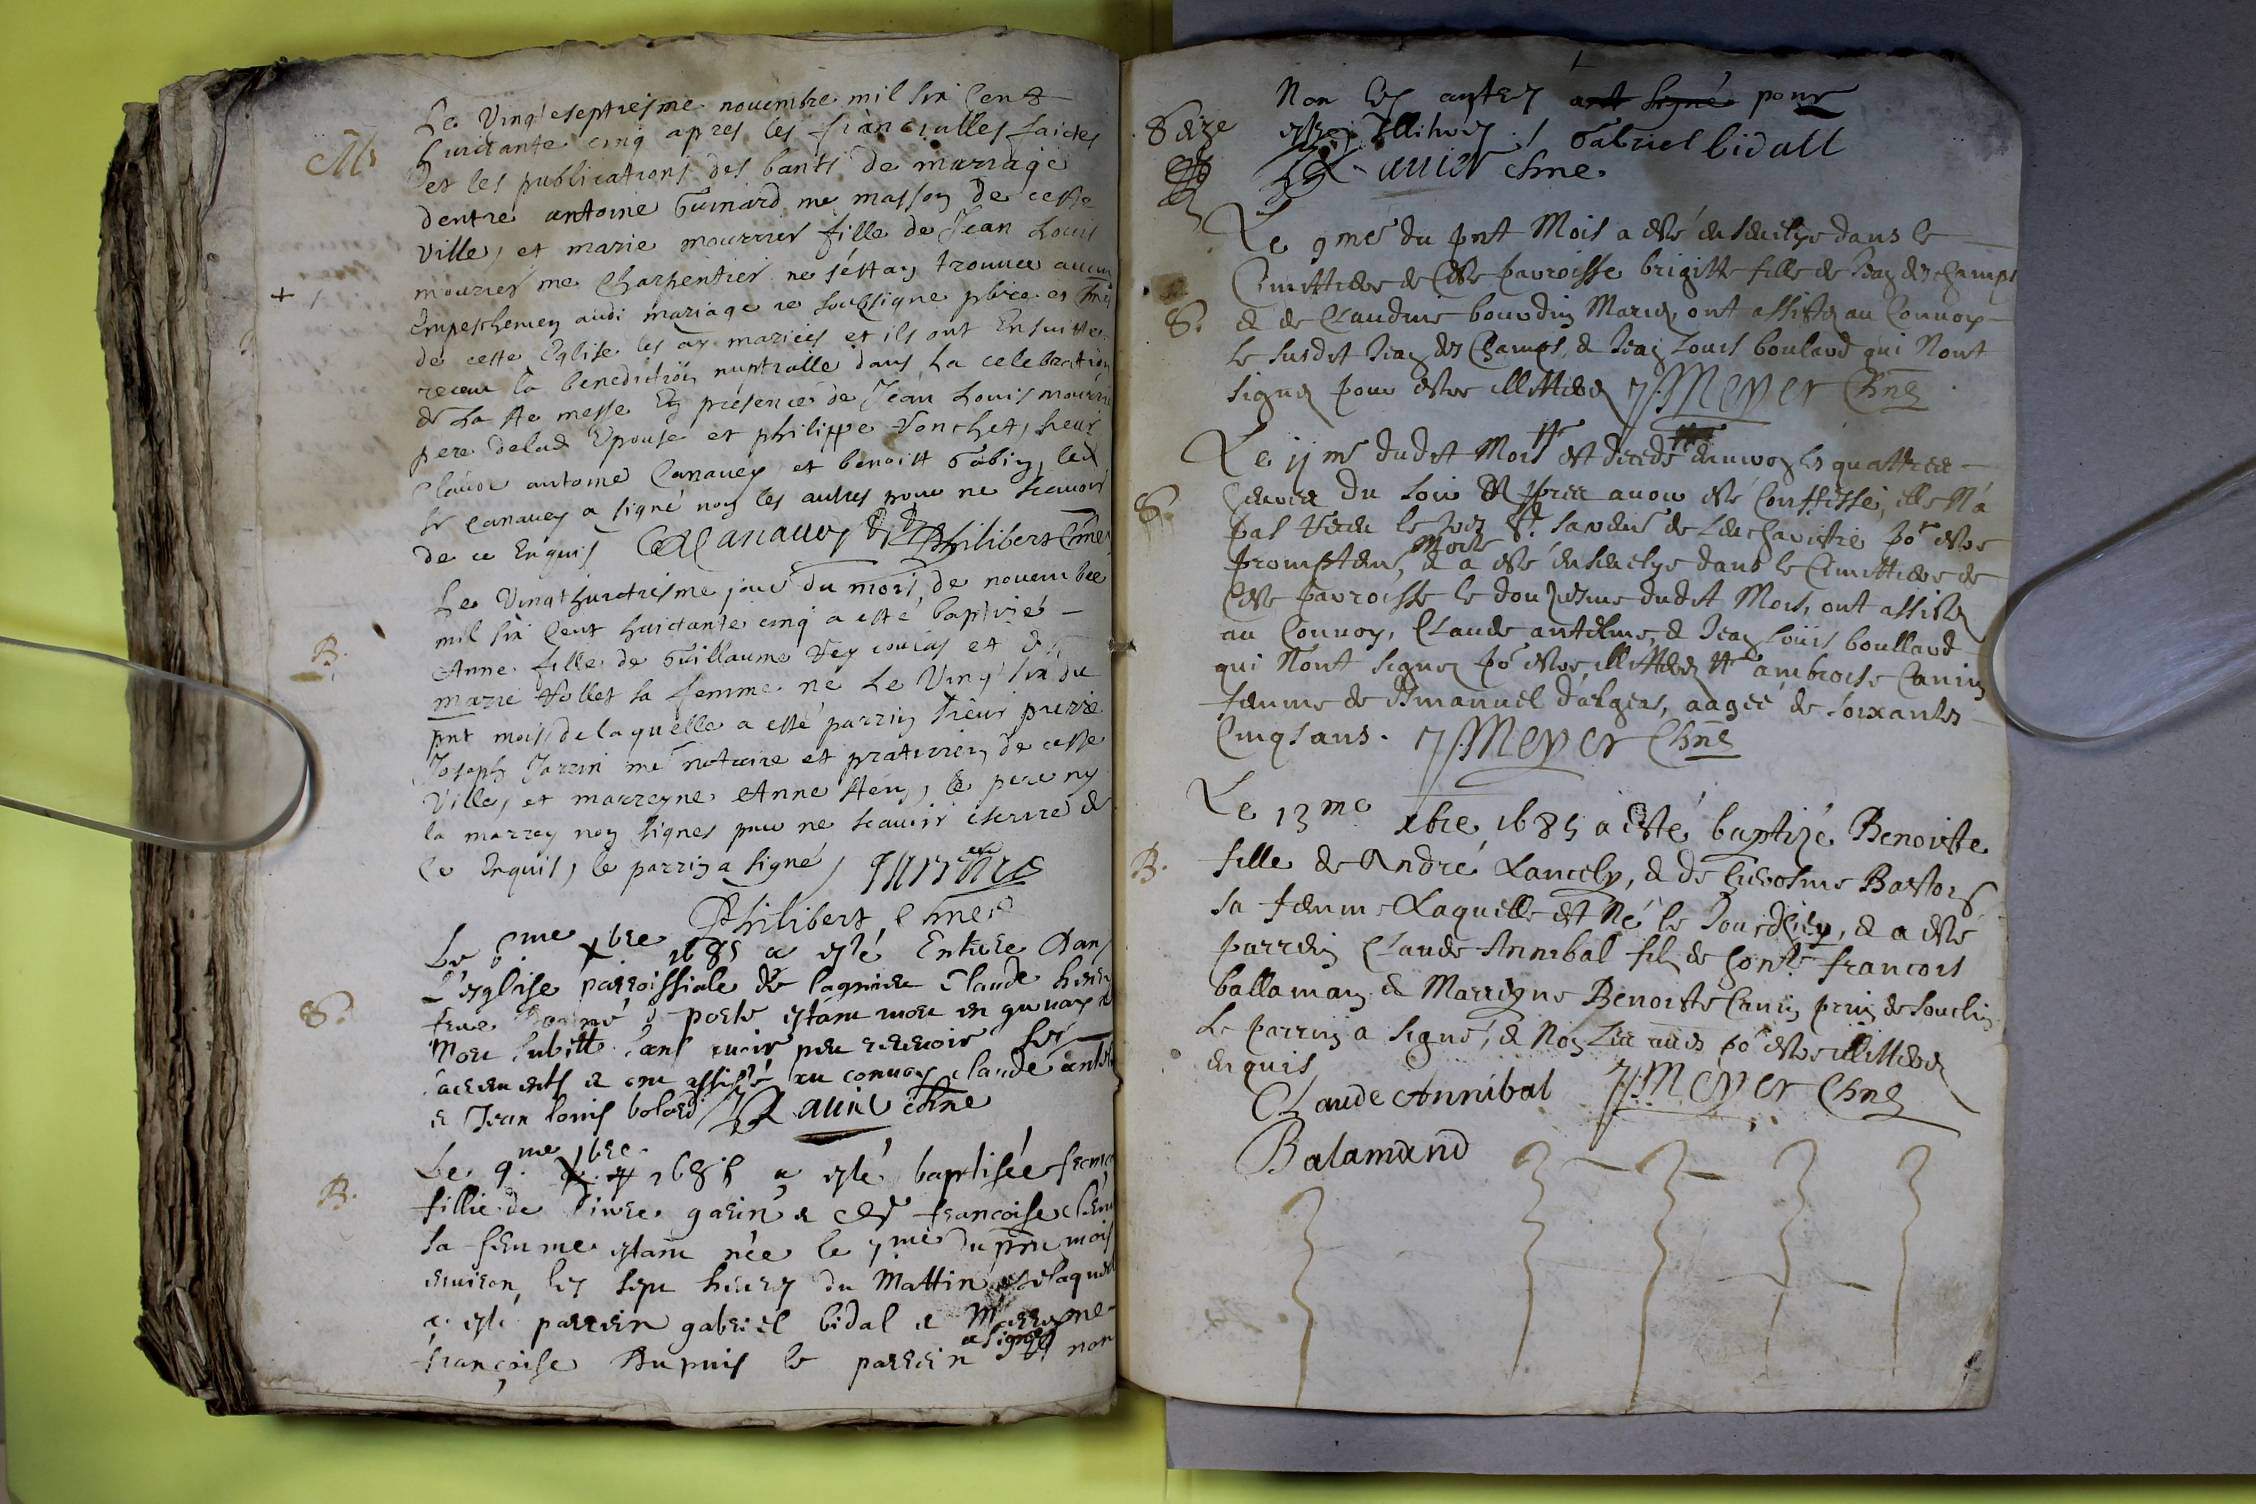 M
Le Vingteseptiesme novembre mil six Cent
huictante cinq apres les fiancialles faictes
et les publications des bants de mariage
dentre antoine Guinard me masson de ceste
ville, et marie mourrier fille de Jean Louis
mourier me Charpentier ne sestan trouvee aucun
Empeschemen audi mariage ie soubsigne pbre et chne
de ceste Eglise les ay mariees et ils ont Ensuitte
receu la benediction nuptialle dans la celebration
de La ste messe En présence de Jean Louis mourrier
pere delad Epouse et philippe Vonchet, sieur
Claude antoine Canavey et benoitt Gobin, led
sr Canavey a signé non les autres pour ne scavoir
de ce Enquis CACanavey Philibert chne
B.
Le Vingt huictiesme jour du mois de novembre
mil six Cent huictante cinq a esté baptizé
Anne fille de Guillaume Vey et de
marie Hollet sa femme né Le Vingt six du
pnt mois de laquelle a esté parrin sieur pierre
Joseph Jarrin me notaire et praticien de ceste
Ville, et marreyne Anne, le pere ny
la marrey non signes pour ne scavoir escrire de
Ce Enquis, le parrin a signé, Jarrin
Philibert chne
S.
Le 6.me xbre 1685 a esté Enterre dans
L'esglise parroissiale de lagnieu Claude
feue poste estant mort en
mort subitte sans avoir peu recevoir les
sacrements et ont assisté au convoy claude
e Jean louis bolard chne
B.
Le 9.me xbre 1685 a esté baptisée
fillie de pierre garin e de françoise
sa femme estant née le 7me du pnt mois
environ les sept heures du Mattin de laquelle
a esté parrein gabriel bidal e Marreyne
françoise Dupuis le parrein a signé non
Seize
Non les autres ont signé pour
estre Illiteres. Gabriel bidall
chne.
S.
Le 9me du pnt Mois a esté ensevelye dans le
Cimettiere de Ceste parroisse brigitte fille de Jean des champs
& de Claudine bourdin Mariez, ont assistez au Convoy
le susdit Jean des Champs, & Jean Louis boulard qui Nont
signez pour estre illitterez J Meyer Chne
S.
Le 11me dudt Mois est decede environ les quattre
heures du soir apres avoir esté Confessé, elle N'a
pas receu le St. sacrement de Leucharistie po estre
promptem morte, & a esté ensevelye dans le Cimettiere de
Ceste parroisse le douziesme dudit Mois, ont assistez
au Convoy, Claude antelme, & Jean Louis boullard
qui Nont signez po estre illitterez ambroise Canin
femme de Emanuel d'algers, aagée de soixantes
Cinqs ans. J Meyer Chne
B.
Le 13me xbre 1685 a esté baptizé Benoiste
fille de André Lancely, & de
sa femme Laquelle est Né le Jour d'hier, & a esté
parrein Claude Annibal fils de françois
ballaman & Marreyne Benoiste Canin
le parrin a signé, & Non Les po estre illitterez
enquis
Claude Annibal J Meyer Chne
Balamand